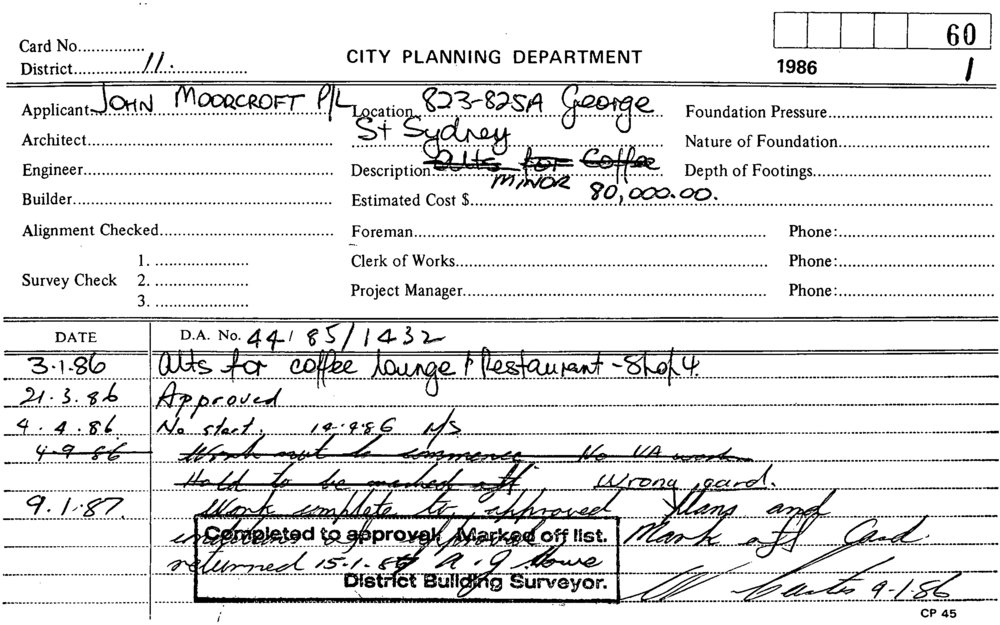 60
Card No...............
District................11.................
CITY PLANNING DEPARTMENT
1986 1
Applicant JOHN MOORCROFT P/L Location 823-825A George
St Sydney
Foundation Pressure
Architect
Nature of Foundation
Engineer
Description Alts for Coffee
MINOR
Depth of Footings
Builder
Estimated Cost $ 80,000.00.
Alignment Checked
Foreman
Phone:
Survey Check 1.
2.
3.
Clerk of Works
Phone:
Project Manager
Phone:
DATE D.A. No. 44/85/1432
3.1.86 Alts for coffee lounge & Restaurant - Shop 4.
21.3.86 Approved
4.4.86. No start.
4-9-86 Work not to commence No VA work
Hold to be marked off wrong card.
9.1.87. Work complete to approved Plans and
conditions of approval Mark off Card
Completed to approval. Marked off list.
returned 15-1-
District Building Surveyor.
9-1-86
CP 45